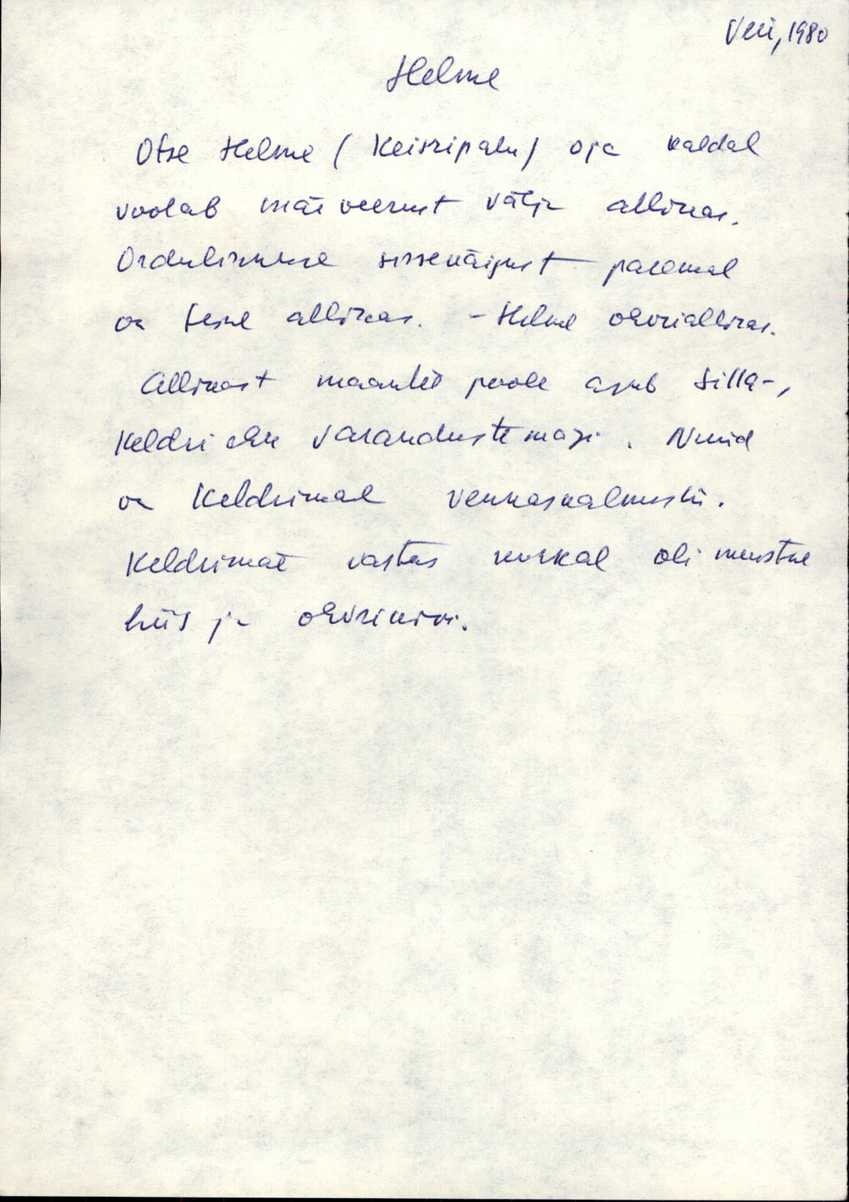 Veri, 1980
Helme
Otse Helme (Keisripalu) oja kaldal
voolab mäe veerust välja allikas.
Ordulinnuse sissekäigust paremal
on teine allikas. - Helme ohvriallikas.
Allikast maantee poole asub Silla-,
Keldri ehk Varandustemägi. Nüüd
on Keldrimäel vennaskalmistu.
Keldrimäe vastas nurkal oli muistne
hiis ja ohvrikivi.